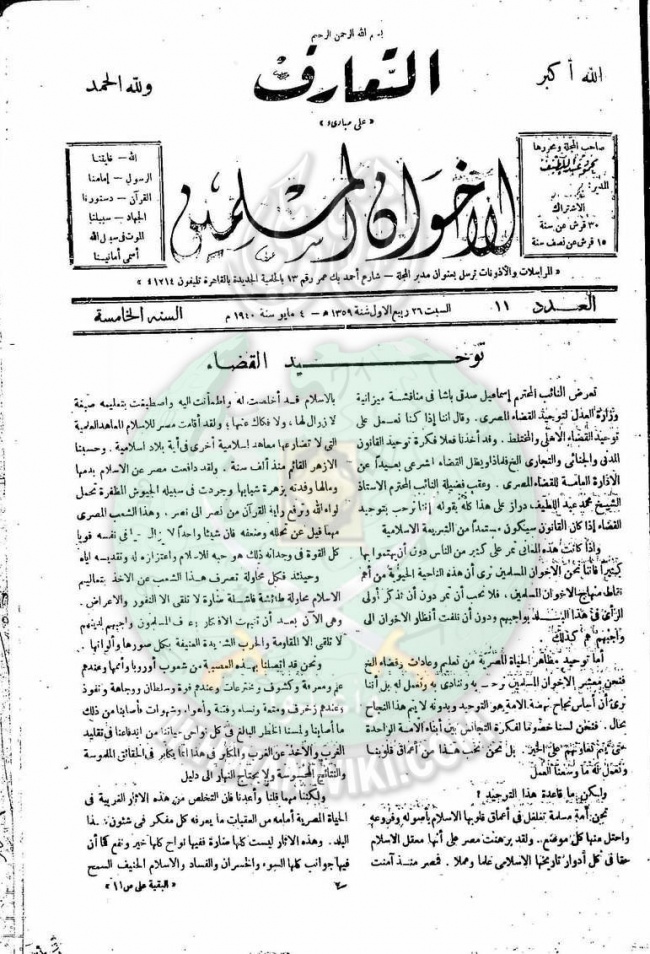 بسم الله الرحمن الرحيم
الله أكبر
التعارف
ولله الحمد
« على مبادىء »
صاحب المجلة ومحررها
المدير:
الاشتراك
٣٠ قرش عن سنة
١٥ قرش عن نصف سنة
الإخوان المسلمين
الله – غايتنا
الرسول – إمامنا
القرآن – دستورنا
الجهاد – سبيلنا
الموت فى سبيل الله
أسمى أمانينا
« المراسلات والأذونات ترسل بعنوان مدير المجلة – شارع أحمد بك عمر رقم ١٣ بالحلمية الجديدة بالقاهرة تليفون ٤١٢١٤ »
العدد ١١
السبت ٢٦ ربيع الاول سنة ١٣٥٩ هـ – ٤ مايو سنة ١٩٤٠ م
السنه الخامسة
توحيد القضاء
تعرض النائب المحترم إسماعيل صدقى باشا فى مناقشة ميزانية
وزارة العدل لتوحيد القضاء المصرى . وقال اننا إذا كنا نعمل على
توحيد القضاء الاهلى والمختلط . وقد أخذنا فعلا فكرة توحيد القانون
المدنى والجنائى والتجارى الخ فلماذا يظل القضاء الشرعى بعيداً عن
الادارة العامة للقضاء المصرى . وعقب فضيلة النائب المحترم الاستاذ
الشيخ محمد عبد اللطيف دراز على هذا كله بقوله إننا نرحب بتوحيد
القضاء إذا كان القانون سيكون مستمداً من الشريعة الاسلامية
وإذا كانت هذه المعانى تمر على كثير من الناس دون أن يهتموا بها
كثيراً فاننا نحن الاخوان المسلمين نرى أن هذه الناحية الحيوية من أهم
نقاط منهاج الاخوان المسلمين . فلا نحب أن تمر دون أن نذكر أولى
الرأى فى هذا البلد بواجبهم ودون أن نلفت أنظار الاخوان الى
واجبهم هم كذلك
أما توحيد مظاهر الحياة المصرية من تعليم وعادات وقضاء الخ
فنحن معشر الاخوان المسلمين نرحب به وننادى به ونعمل له بل أننا
نرى أن أساس نجاح نهضة الامة هو التوحيد وبدونه لا يتم هذا النجاح
بحال . فنحن لسنا خصوما لفكرة التجانس بين أبناء الامة الواحدة
حتى يتم تعاونهم على الخير بل نحن نحب هذا من أعماق قلوبنا
ونعمل له ما وسعنا العمل
ولكن ما قاعدة هذا التوحيد ؟
نحن أمة مسلمة تغلغل فى أعماق قلوبها الاسلام بأصوله وفروعه
واحتل منها كل موضع . ولقد برهنت مصر على أنها معقل الاسلام
حقا فى كل أدوار تاريخها الاسلامى علما وعملا . فمصر منذ آمنت
بالاسلام قد أخلصت له واطمأنت اليه واصطبغت بتعاليمه صبغة
لا زوال لها ، ولا فكاك عنها ؛ ولقد أقامت مصر للاسلام المعاهد العلمية
التى لا تضارعها معاهد اسلامية أخرى فى أية بلاد اسلامية . وحسبنا
الازهر القائم منذ ألف سنة . ولقد دافعت مصر عن الاسلام بدمها
ومالها وفدته بزهرة شبابها وجردت فى سبيله الجيوش المظفرة تحمل
لواء الله وترفع راية القرآن من نصر الى نصر . وهذا الشعب المصرى
مهما قيل عن تحلله وضعفه فان شيئا واحداً لا يزال فى نفسه قويا
كل القوة فى وجدانه ذلك هو حبه للاسلام واعتزازه له وتقديسه اياه
وحينئذ فكل محاولة تصرف هذا الشعب عن الاخذ بتعاليم
الاسلام محاولة طائشة فاشلة ضارة لا تلقى الا النفور والاعراض .
وهى الآن بعد أن تنبهت الافكار وعرف المسلمون واجبهم لدينهم
لا تلقى الا المقاومة والحرب الشديدة العنيفة بكل صورها وألوانها .
ونحن قد اتصلنا بهذه العصبة من شعوب أوروبا وأمها وعندهم
علم ومعرفة وكشوف ومخترعات وعندهم قوة وسلطان ووجاهة ونفوذ
وعندهم زخرف ومتعة ونساء وفتنة وأهواء وشهوات فأصابنا من ذلك
ما أصابنا ولمسنا الخطر البالغ فى كل نواحى حياتنا من اندفاعنا فى تقليد
الغرب والأخذ عن الغرب والمكابر فى هذا انما يكابر فى الحقائق الملموسة
والنتائج المحسوسة ولا يحتاج النهار الى دليل
ولكننا مهما قلنا وأعدنا فان التخلص من هذه الآثار الغربية فى
الحياة المصرية أمامه من العقبات ما يعرفه كل مفكر فى شئون هذا
البلد . وهذه الآثار ليست كلها ضارة ففيها نواح كلها خير ونفع كما أن
فيها جوانب كلها السوء والخسران والفساد والاسلام الحنيف السمح
« البقية على ص ١١ »